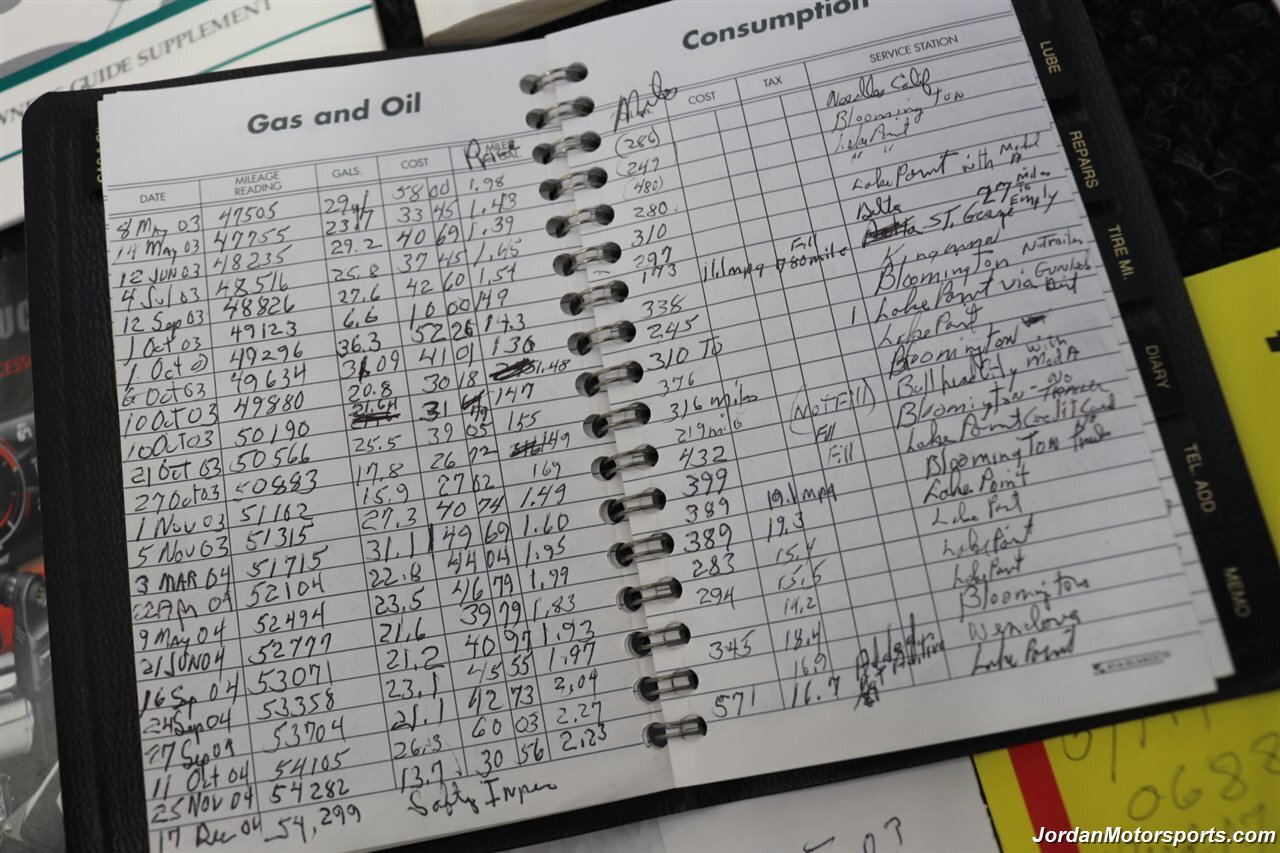 GUIDE SUPPLEMENT
Gas and Oil
Consumption
DATE MILEAGE READING GALS. COST
Miles COST TAX SERVICE STATION
8 May 03 47505 29.1 58 00 1.98
14 May 03 47755 33 45 1.43
12 JUN 03 48235 29.2 40 69 1.39
4 Jul 03 48516 25.8 37 45 1.45
12 Sep 03 48826 27.6 42 60 1.54
1 Oct 03 49123 6.6 10 00 149
1 Oct 49296 36.3 52 26
6 Oct 03 49634 31.09 41 01 130
10 Oct 03 49880 20.8 30 18 1.48
10 Oct 03 50190 31 147
21 Oct 03 50566 25.5 39 05 155
27 Oct 03 50883 17.8 26 72 149
1 Nov 03 51102 15.9 27 02 169
5 Nov 03 51315 27.3 40 74 1.49
3 MAR 04 51715 31.1 49 69 1.60
52104 22.8 44 04 1.95
9 May 04 52494 23.5 46 79 1.99
21 JUN 04 52777 21.6 39 79 1.83
16 Sep 04 53071 21.2 40 97 1.93
24 Sep 04 53358 23.1 45 55 1.97
27 Sep 04 53704 21.1 42 73 2.04
11 Oct 04 54105 26.3 60 03 2.27
25 Nov 04 54282 13.7 30 56 2.23
17 Dec 04 54,299
Needles Calif
(286) Bloomington
(247) Lake Point
(480) " "
280
310 Lake Point with Model A
297 Delta
173 11.1 mpg Fill 780 mile ST. George 27 miles To Empty
338 Kingman
245 Bloomington No Trailer
310 To 1 Lake Point via
376 Lake Point
316 miles (Not Fill) Bloomington
219 mi Fill Bullhead City with Mod A
432 Fill Bloomington No TRAILER
399 Lake Point Credit Card
389 19.1 mpg Bloomington
389 19.3 Lake Point
283 15.4 Lake Point
294 13.6 Lake Point
14.2 Lake Point
345 18.4 Bloomington
16.9 Wendova
571 16.7 Lake Point
LUBE
REPAIRS
TIRE MI.
DIARY
TEL. ADD.
MEMO
0688
JordanMotorsports.com